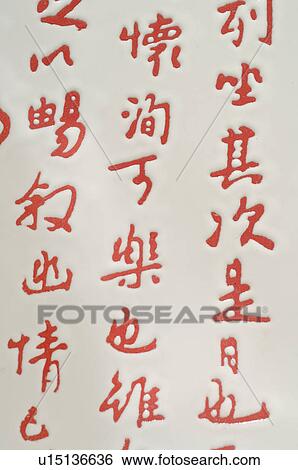 列坐其次是日也
懷洵可樂也雖
以暢叙幽情已
Fotosearch®
u15136636
www.fotosearch.com